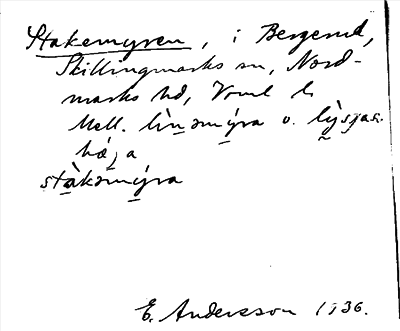 Stakemyren, i Bergerud,
Skillingmarks sn, Nord-
marks hd, Vrml l.
Mell. lìn̲əmý̲ra o. lỳ̰sjas-
hǽja
stà̲kəmý̲ra
E. Andersson 1936.